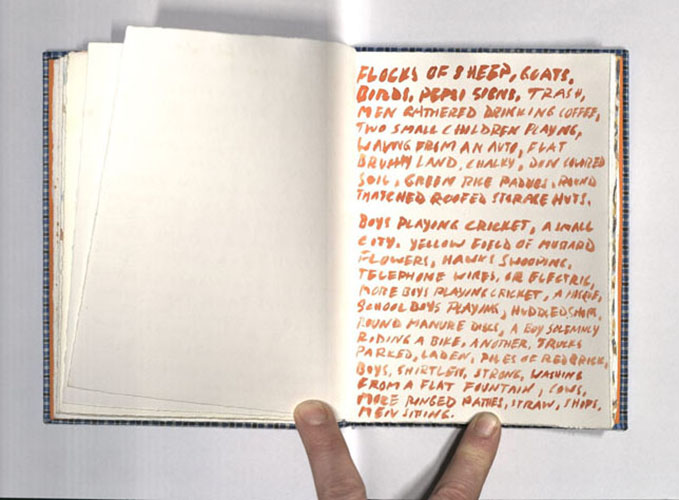 FLOCKS OF SHEEP, GOATS,
BIRDS, PEPSI SIGNS, TRASH,
MEN GATHERED DRINKING COFFEE,
TWO SMALL CHILDREN PLAYING,
WAVING FROM AN AUTO, FLAT
BRUSHY LAND, CHALKY, DUN COLORED
SOIL, GREEN RICE PADDIES, ROUND
THATCHED ROOFED STORAGE HUTS.
BOYS PLAYING CRICKET, A SMALL
CITY. YELLOW FIELD OF MUSTARD
FLOWERS, HAWKS SWOOPING,
TELEPHONE WIRES, OR ELECTRIC,
MORE BOYS PLAYING CRICKET, A
SCHOOL BOYS PLAYING, HUDDLED
ROUND MANURE DISCS, A BOY SOLEMNLY
RIDING A BIKE, ANOTHER. TRUCKS
PARKED, LADEN, PILES OF RED BRICK,
BOYS, SHIRTLESS, STRONG, WASHING
FROM A FLAT FOUNTAIN, COWS,
MORE RINGED STRAW, SHOPS,
MEN SITTING.